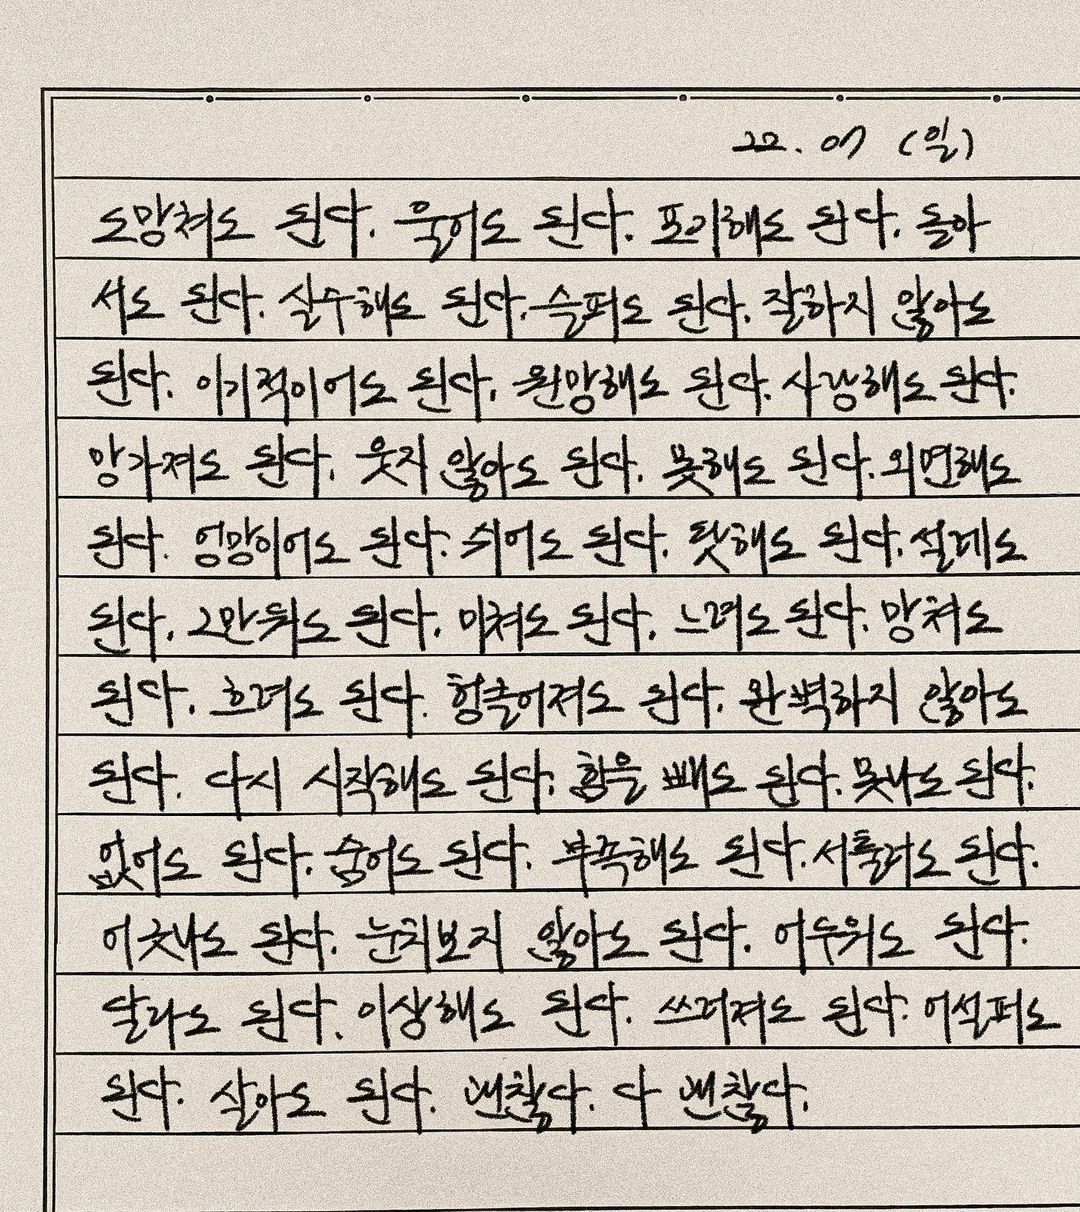 22. 07 (일)
도망쳐도 된다. 묵어도 된다. 포기해도 된다. 돌아
서도 된다. 실수해도 된다. 슬퍼도 된다. 잘하지 않아도
된다. 이기적이어도 된다. 원망해도 된다. 사랑해도 된다.
망가져도 된다. 웃지 않아도 된다. 못해도 된다. 외면해도
된다. 엉망이어도 된다. 쉬어도 된다. 탓해도 된다. 설레도
된다. 그만둬도 된다. 미쳐도 된다. 느려도 된다. 망쳐도
된다. 흐려도 된다. 헝클어져도 된다. 완벽하지 않아도
된다. 다시 시작해도 된다. 힘을 빼도 된다. 못나도 된다.
없어도 된다. 숨어도 된다. 부족해도 된다. 서툴러도 된다.
어긋나도 된다. 눈치보지 않아도 된다. 어두워도 된다.
달라도 된다. 이상해도 된다. 쓰러져도 된다. 어설퍼도
된다. 살아도 된다. 괜찮다. 다 괜찮다.